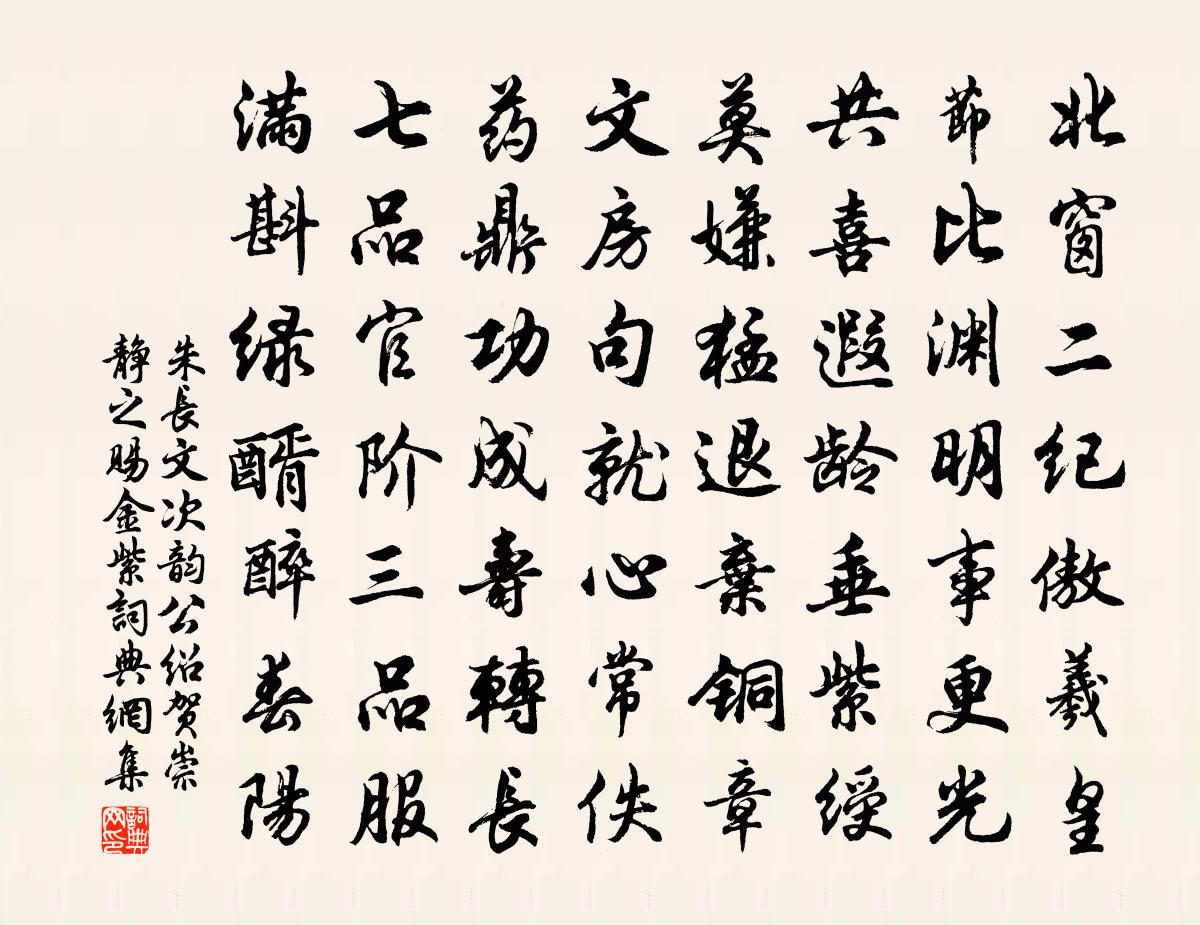 北窗二纪傲羲皇
节比渊明事更光
共喜遐龄垂紫绶
莫嫌猛退棄铜章
文房句就心常佚
药鼎功成壽轉長
七品官阶三品服
满斟绿醑醉春陽
朱長文次韵公绍贺崇
静之赐金紫詞典網集
詞典网印